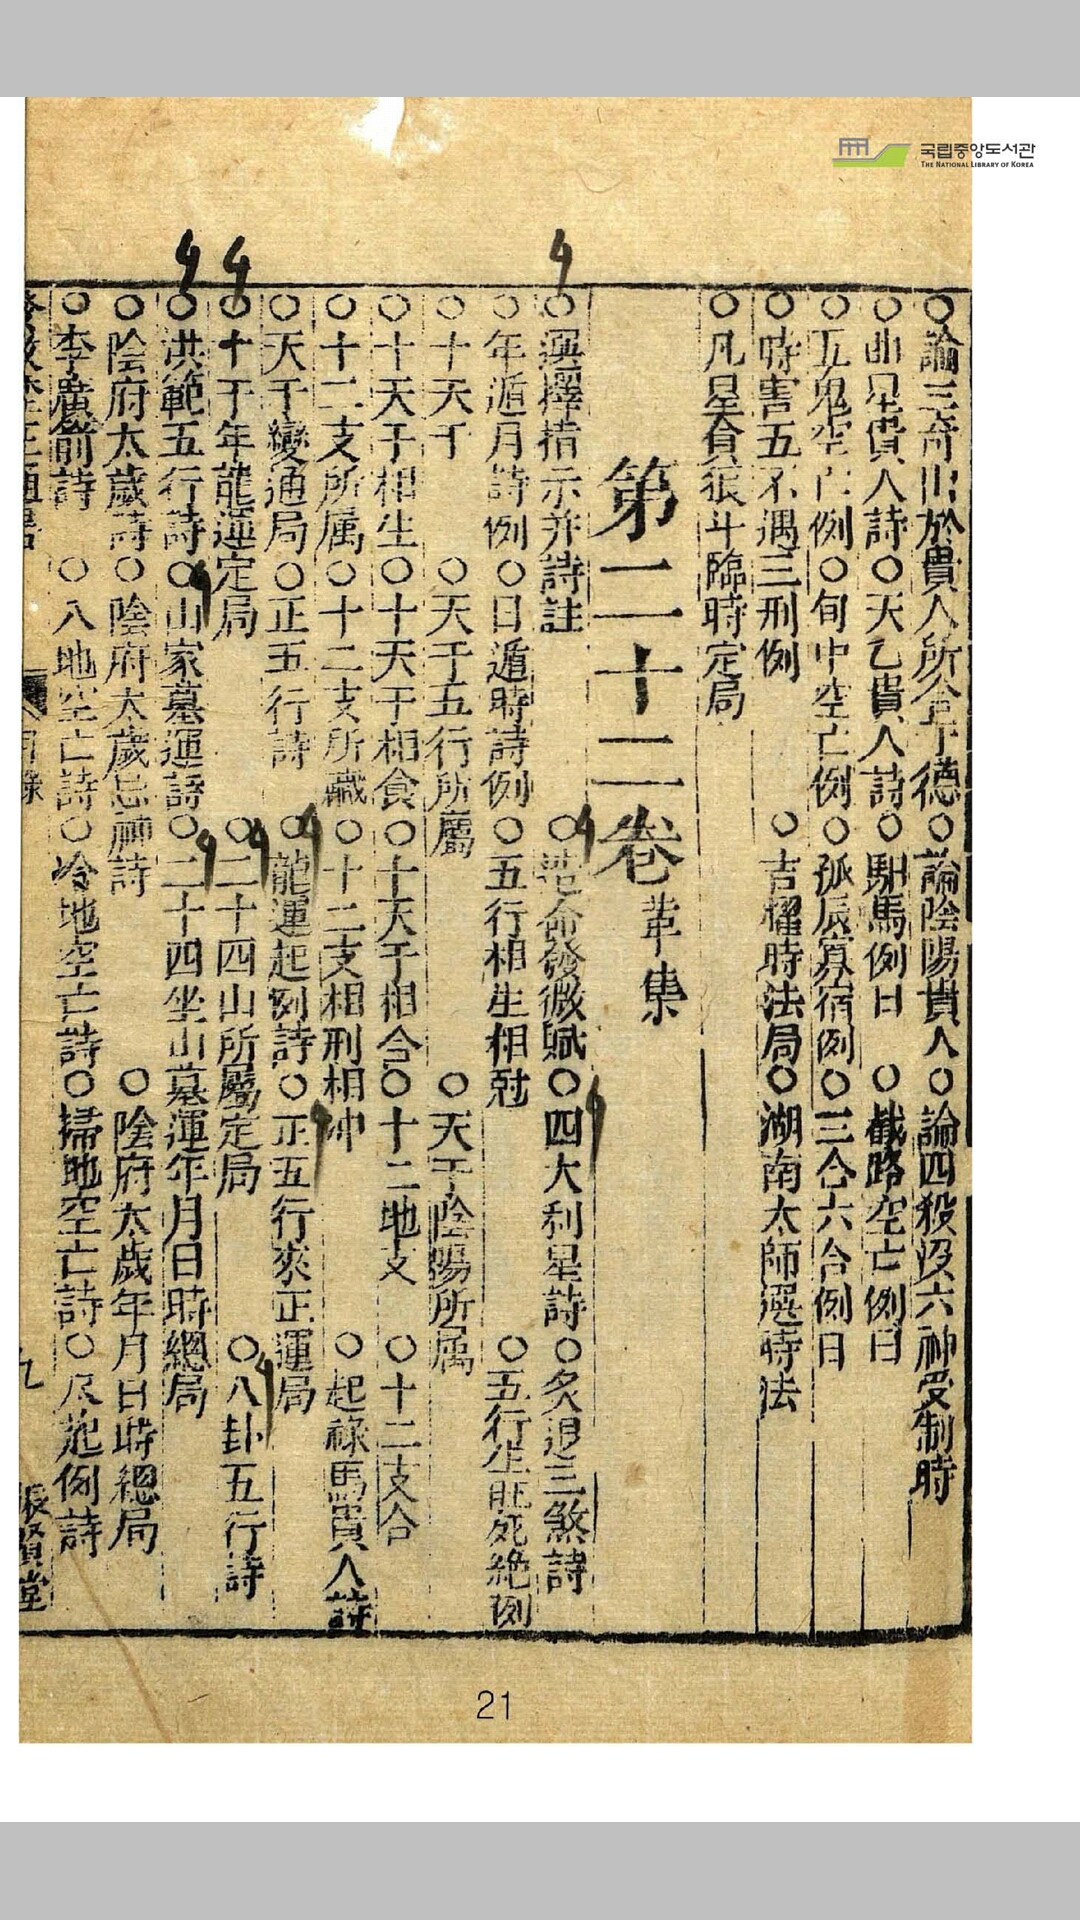 국립중앙도서관
THE NATIONAL LIBRARY OF KOREA
○論三奇出於貴人所合于德○論陰陽貴人○論四殺沒六神受制時
○曲星貴人詩○天乙貴人詩○馹馬例日○截路空亡例日
○五鬼空亡例○旬中空亡例○孤辰寡宿例○三合六合例日
○時害五不遇三刑例○吉耀時法局○湖南太師選時法
○凡星貪狼斗臨時定局
第二十二卷 革集
○選擇指示并詩註○造命發微賦○四大利星詩○炙退三煞詩
○年遁月詩例○日遁時詩例○五行相生相尅○五行生旺死絶例
○十天干○天干五行所屬○天干陰陽所属
○十天干相生○十天干相食○十天干相合○十二地支○十二支合
○十二支所属○十二支所藏○十二支相刑相冲○起祿馬貴人詩
○天干變通局○正五行詩○龍運起例詩○正五行來正運局
○十干年龍運定局○二十四山所屬定局○八卦五行詩
○洪範五行詩○山家墓運詩○二十四坐山墓運年月日時總局
○陰府太歲詩○陰府太歲忌神詩○陰府太歲年月日時總局
○李廣箭詩○八地空亡詩○冷地空亡詩○掃地空亡詩○尺起例詩
目錄
九
賢堂
21